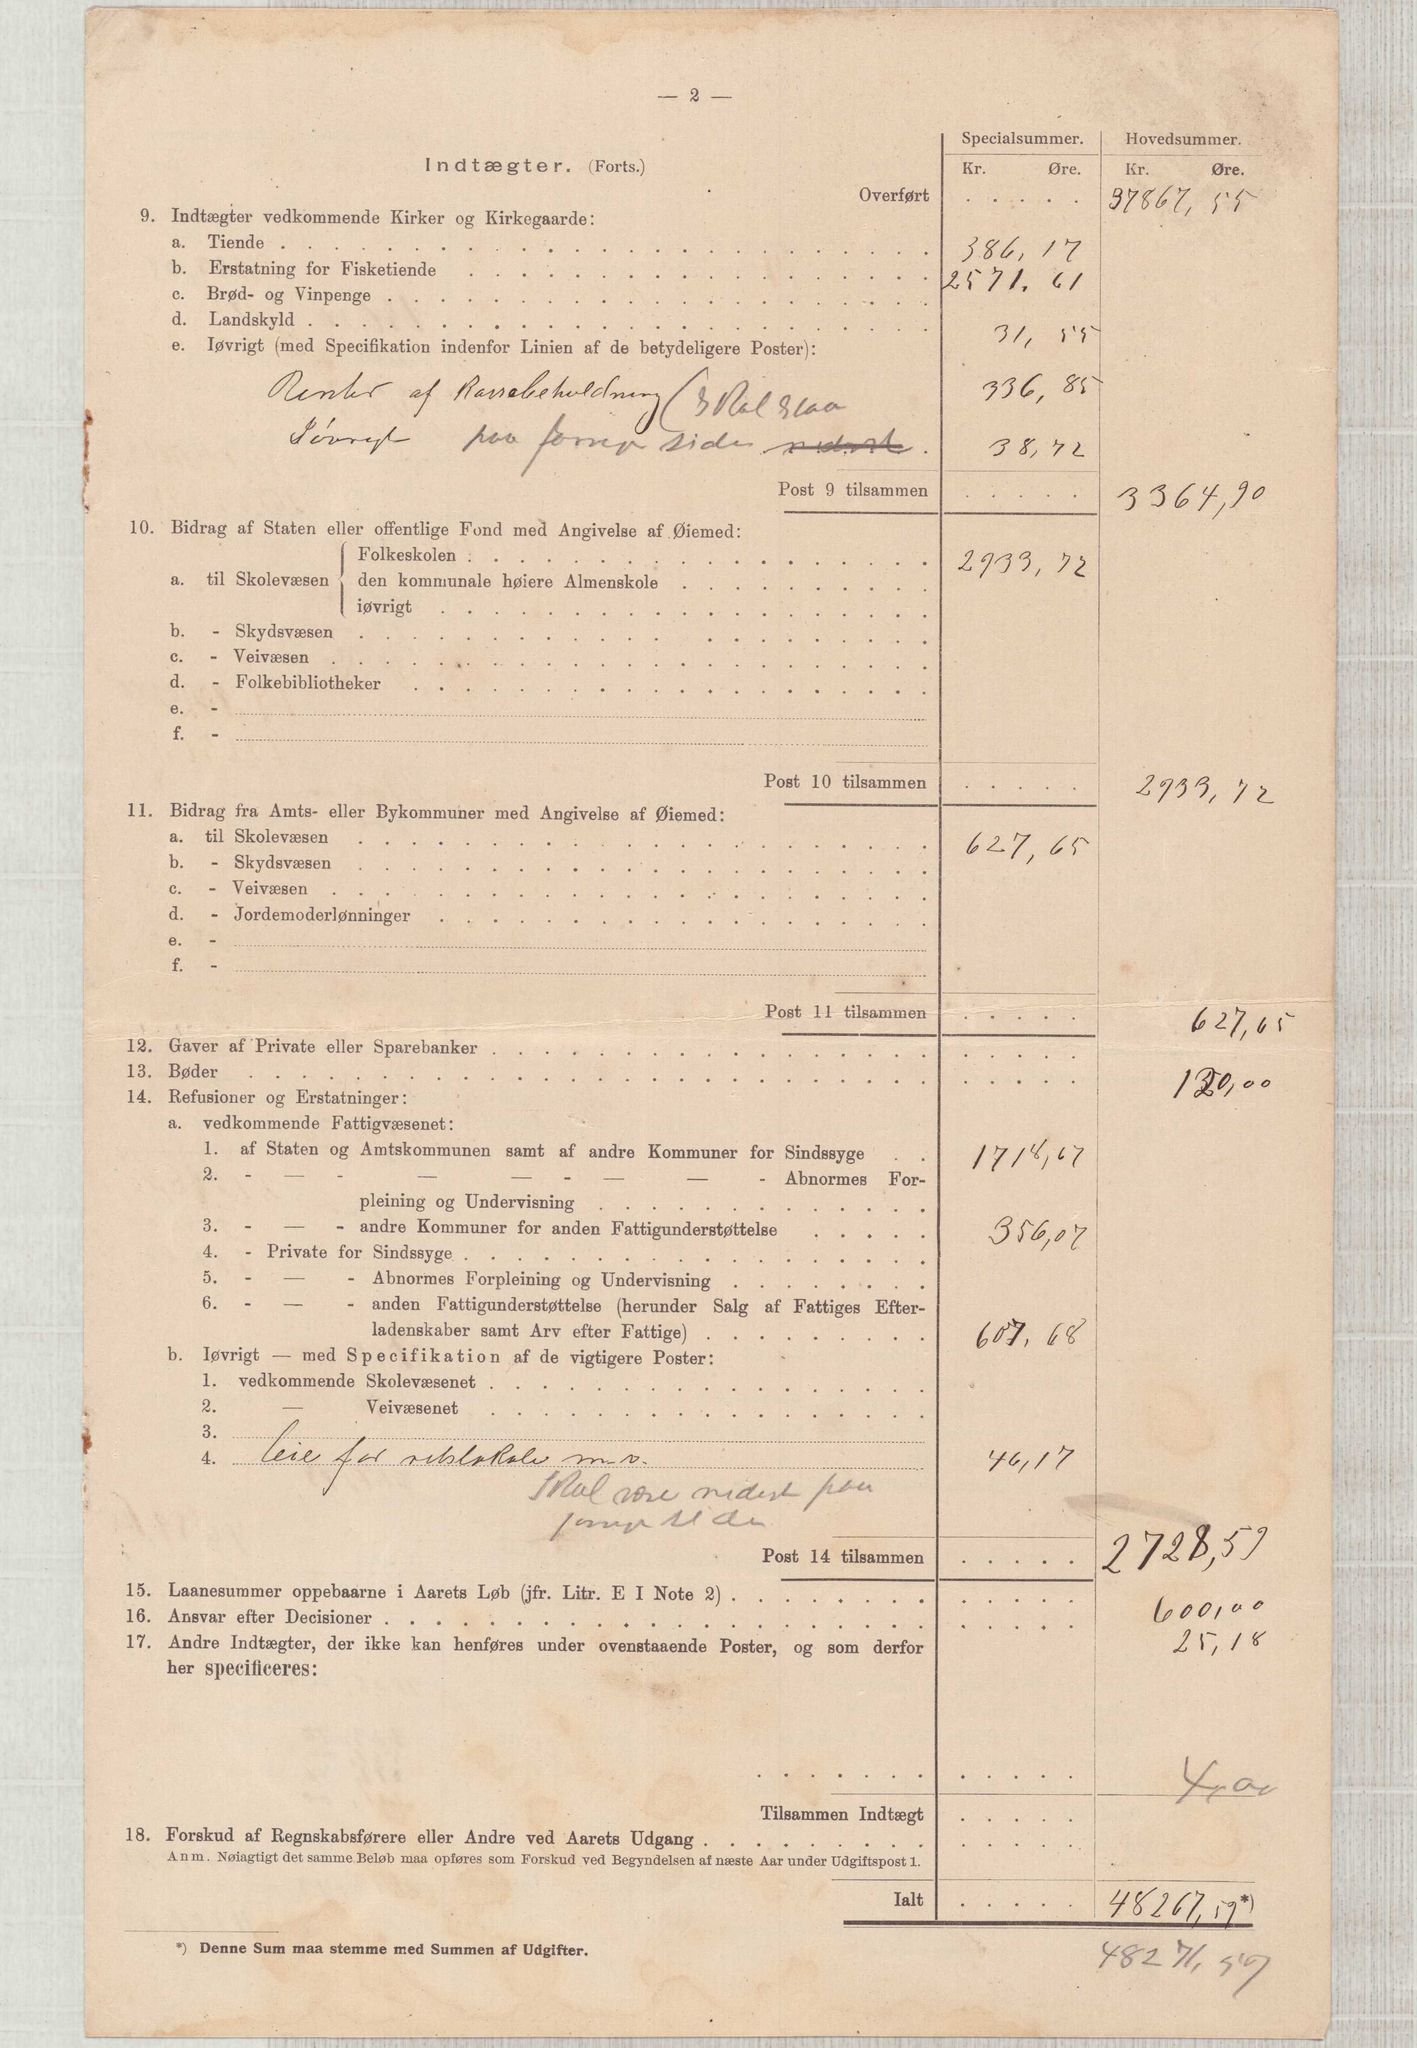 — 2 —
Specialsummer. Hovedsummer.
Indtægter. (Forts.) Kr. Øre. Kr. Øre.
Overført . . . . . 37867, 55
9. Indtægter vedkommende Kirker og Kirkegaarde:
a. Tiende 386, 17
b. Erstatning for Fisketiende 2571, 61
c. Brød- og Vinpenge
d. Landskyld 31, 55
e. Iøvrigt (med Specifikation indenfor Linien af de betydeligere Poster):
Renter af Kassebeholdning (skal staa 336, 85
Iøvrigt paa forrige side nederst. 38, 72
Post 9 tilsammen . . . . . 3364, 90
10. Bidrag af Staten eller offentlige Fond med Angivelse af Øiemed:
Folkeskolen 2933, 72
a. til Skolevæsen den kommunale høiere Almenskole
iøvrigt
b. - Skydsvæsen
c. - Veivæsen
d. - Folkebibliotheker
e. -
f. -
Post 10 tilsammen . . . . . 2933, 72
11. Bidrag fra Amts- eller Bykommuner med Angivelse af Øiemed:
a. til Skolevæsen 627, 65
b. - Skydsvæsen
c. - Veivæsen
d. - Jordemoderlønninger
e. -
f. -
Post 11 tilsammen . . . . . 627, 65
12. Gaver af Private eller Sparebanker
13. Bøder 120,00
14. Refusioner og Erstatninger:
a. vedkommende Fattigvæsenet:
1. af Staten og Amtskommunen samt af andre Kommuner for Sindssyge 1718, 67
2. - — - — — - — — - Abnormes For-
pleining og Undervisning
3. - — - andre Kommuner for anden Fattigunderstøttelse 356,07
4. - Private for Sindssyge
5. - — - Abnormes Forpleining og Undervisning
6. - — - anden Fattigunderstøttelse (herunder Salg af Fattiges Efter-
ladenskaber samt Arv efter Fattige) 607, 68
b. Iøvrigt — med Specifikation af de vigtigere Poster:
1. vedkommende Skolevæsenet
2. — Veivæsenet
3.
4. Leie for retslokale m.v. 46,17
Skal være nederst paa
forrige side
Post 14 tilsammen . . . . . 2728,59
15. Laanesummer oppebaarne i Aarets Løb (jfr. Litr. E I Note 2) 600,00
16. Ansvar efter Decisioner 25,18
17. Andre Indtægter, der ikke kan henføres under ovenstaaende Poster, og som derfor
her specificeres:
4,00
Tilsammen Indtægt
18. Forskud af Regnskabsførere eller Andre ved Aarets Udgang
Anm. Nøiagtigt det samme Beløb maa opføres som Forskud ved Begyndelsen af næste Aar under Udgiftspost 1.
Ialt . . . . . 48267, 59*)
*) Denne Sum maa stemme med Summen af Udgifter.
48271, 59